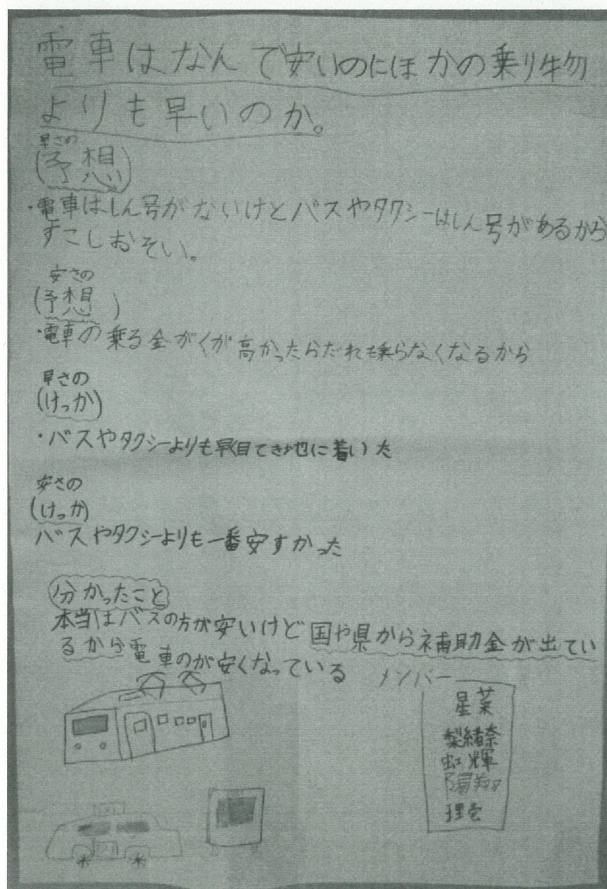 電車はなんで安いのにほかの乗り物
よりも早いのか。
早さの
(予想)
・電車はしん号がないけどバスやタクシーはしん号があるから
すこしおそい。
安さの
(予想)
・電車の乗る金がくが高かったらだれも乗らなくなるから
早さの
(けっか)
・バスやタクシーよりも早目てき地に着いた
安さの
(けっか)
バスやタクシーよりも一番安すかった
分かったこと
本当はバスの方が安いけど国や県から補助金が出てい
るから電車のが安くなっている
メンバー
星菜
梨緒奈
虹輝